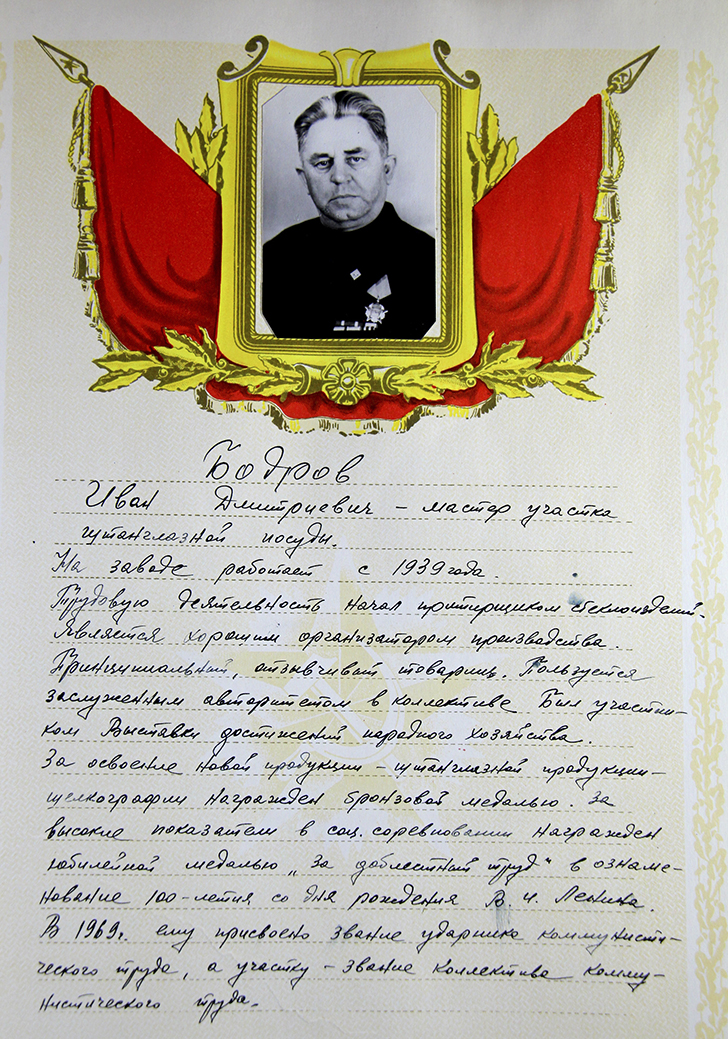 Бодров
Иван Дмитриевич – мастер участка
штанглазной посуды.
На заводе работает с 1939 года.
Трудовую деятельность начал притирщиком стеклоизделий.
Является хорошим организатором производства.
Принципиальный, отзывчивый товарищ. Пользуется
заслуженным авторитетом в коллективе Был участни-
ком Выставки достижений народного хозяйства.
За освоение новой продукции – штанглазной продукции –
шелкографии награжден бронзовой медалью. За
высокие показатели в соц. соревновании награжден
юбилейной медалью „За доблестный труд“ в ознаме-
нование 100-летия со дня рождения В. И. Ленина.
В 1969г. ему присвоено звание ударника коммунисти-
ческого труда, а участку – звание коллектива комму-
нистического труда.